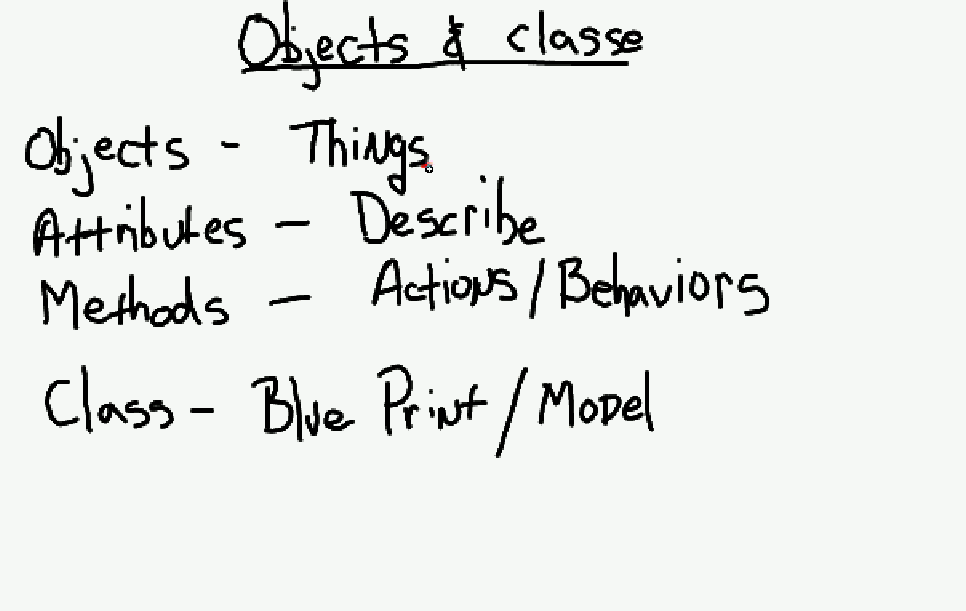 Objects & classe
Objects - Things
Attributes - Describe
Methods - Actions/Behaviors
Class - Blue Print/Model